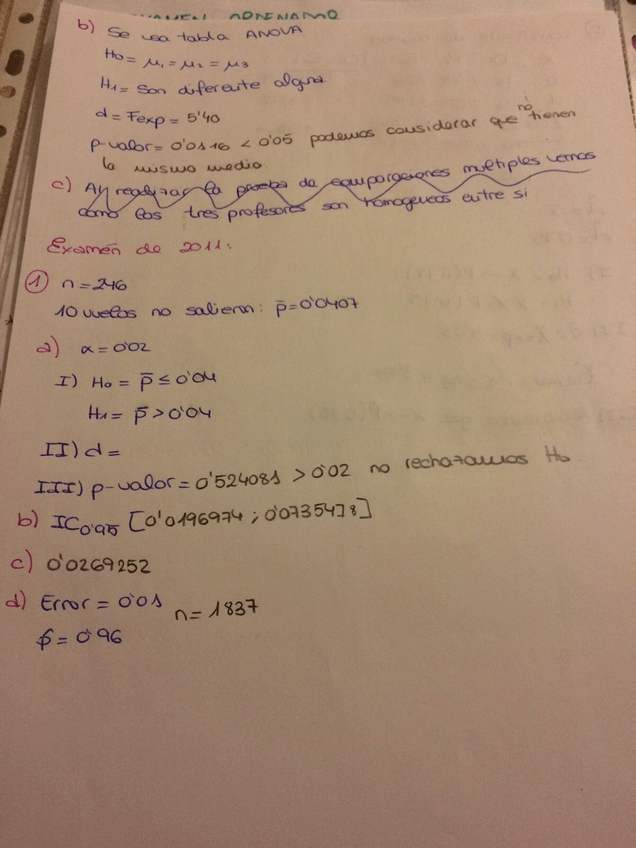 EXAMEN ORDENADOR
b) Se usa tabla ANOVA
H₀ = μ₁ = μ₂ = μ₃
H₁ = Son diferente alguna
d = Fexp = 5'40
p-valor = 0'0116 < 0'05 podemos considerar que no tienen
la misma media
c) Al realizar la prueba de comparaciones multiples vemos
como los tres profesores son homogeneos entre si
Examén de 2011:
① n = 246
10 vuelos no salieron: p̄ = 0'0407
a) α = 0'02
I) H₀ = p̄ ≤ 0'04
H₁ = p̄ > 0'04
II) d =
III) p-valor = 0'524081 > 0'02 no rechazamos H₀
b) IC₀'₉₅ [0'0196974 ; 0'0735478]
c) 0'0269252
d) Error = 0'01 n = 1837
p̂ = 0'96